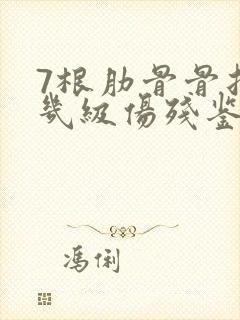 7根肋骨骨折
幾級傷殘鉴
馮俐